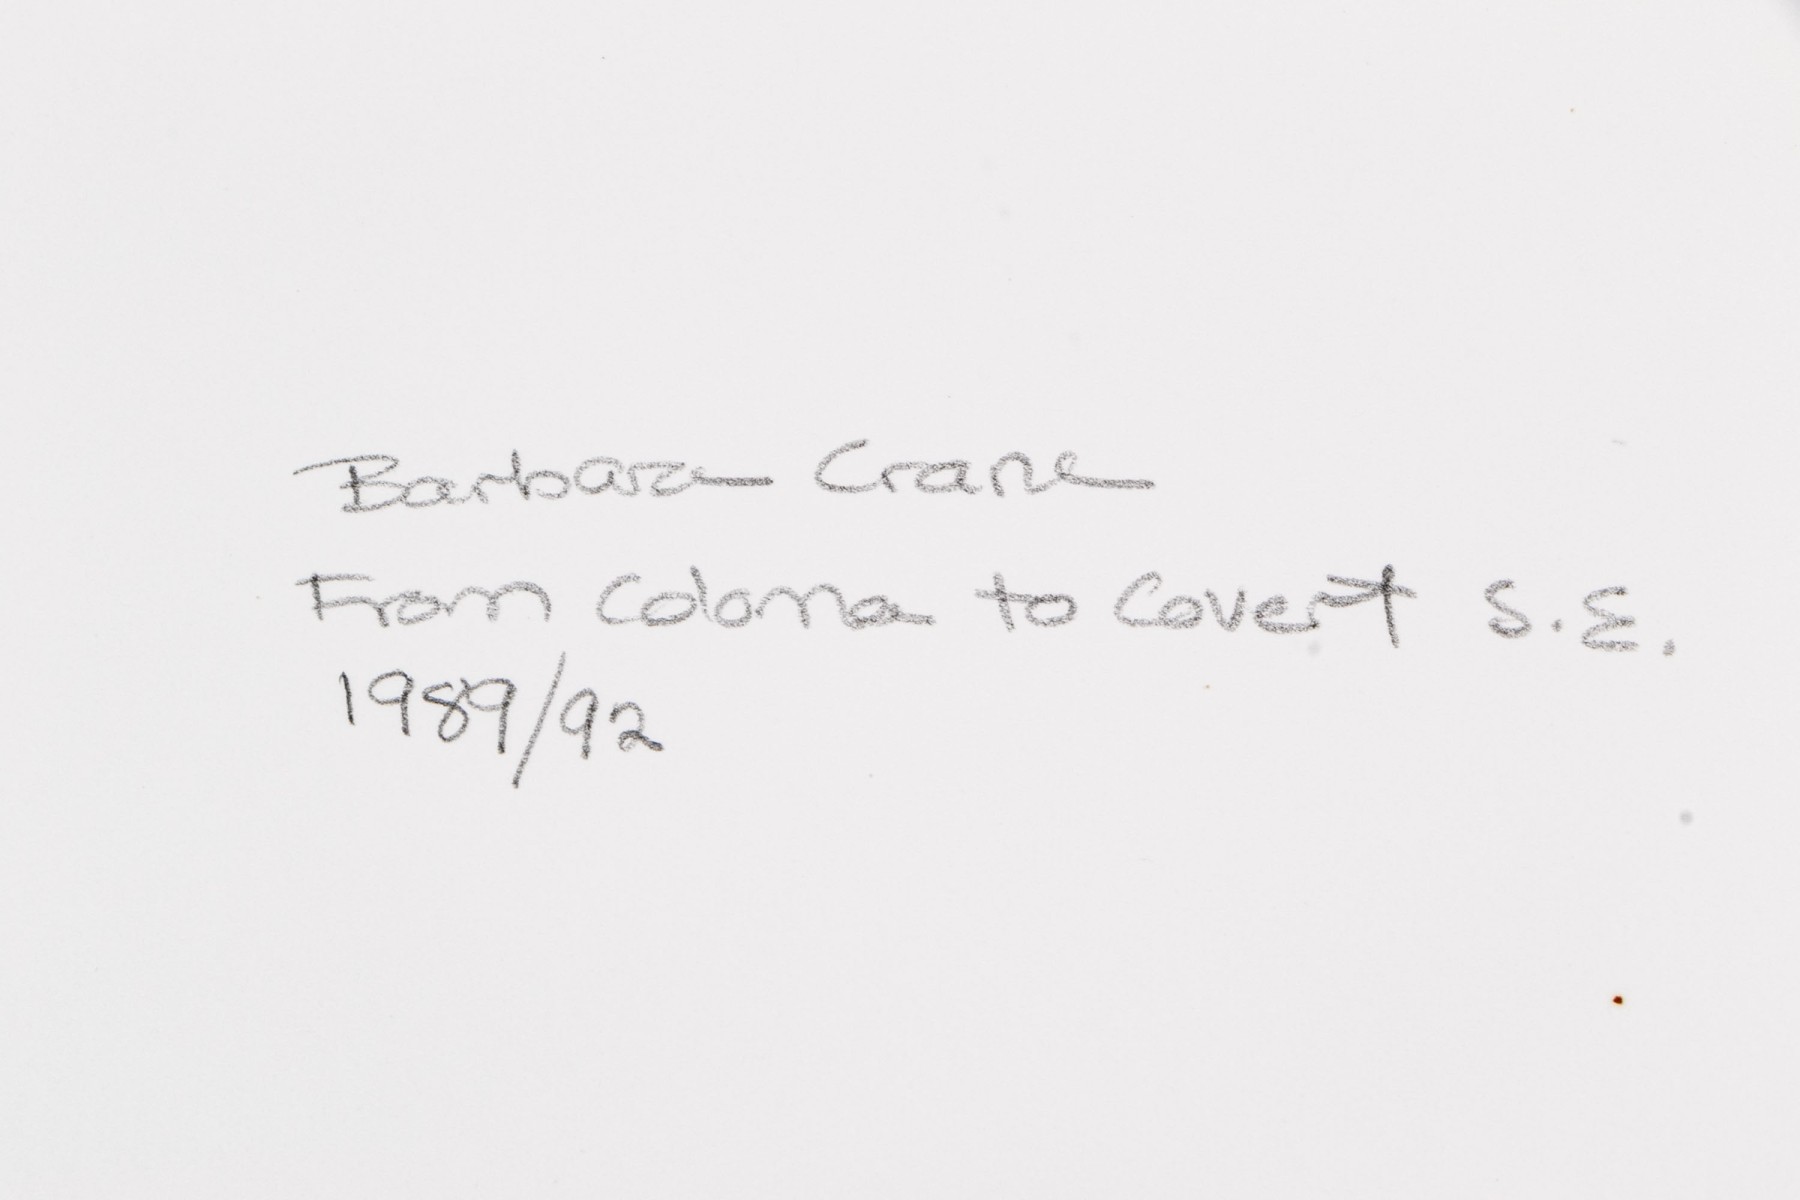 Barbara Crane
From Coloma to Covert S.E.
1989/92